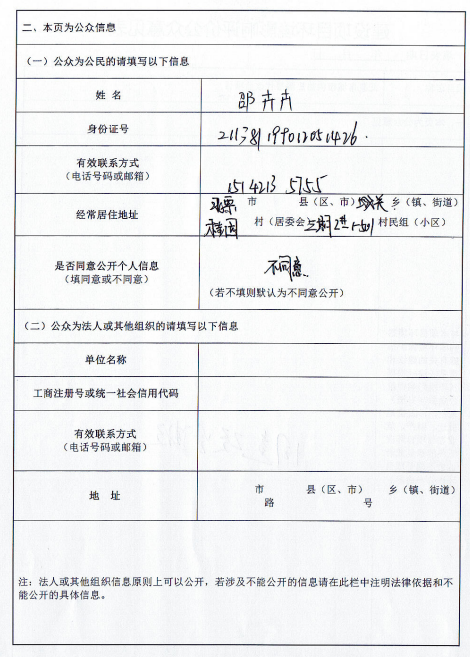 二、本页为公众信息
（一）公众为公民的请填写以下信息
姓 名
邵卉卉
身份证号
211381199012051426.
有效联系方式
（电话号码或邮箱）
1514213 5755
经常居住地址
北票 市 县（区、市）城关 乡（镇、街道）
村（居委会 村民组（小区）
是否同意公开个人信息
（填同意或不同意）
不同意
（若不填则默认为不同意公开）
（二）公众为法人或其他组织的请填写以下信息
单位名称
工商注册号或统一社会信用代码
有效联系方式
（电话号码或邮箱）
地 址
市 县（区、市） 乡（镇、街道）
路 号
注：法人或其他组织信息原则上可以公开，若涉及不能公开的信息请在此栏中注明法律依据和不
能公开的具体信息。